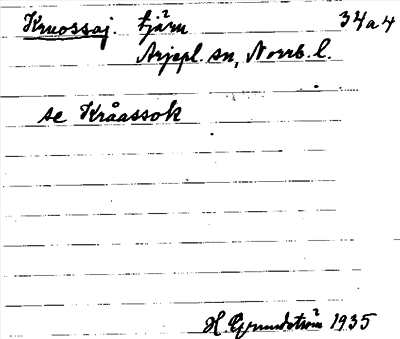 Kruossaj. tjärn 34a4
Arjepl. sn, Norrb. l.
se Kråassok
H. Grundström 1935